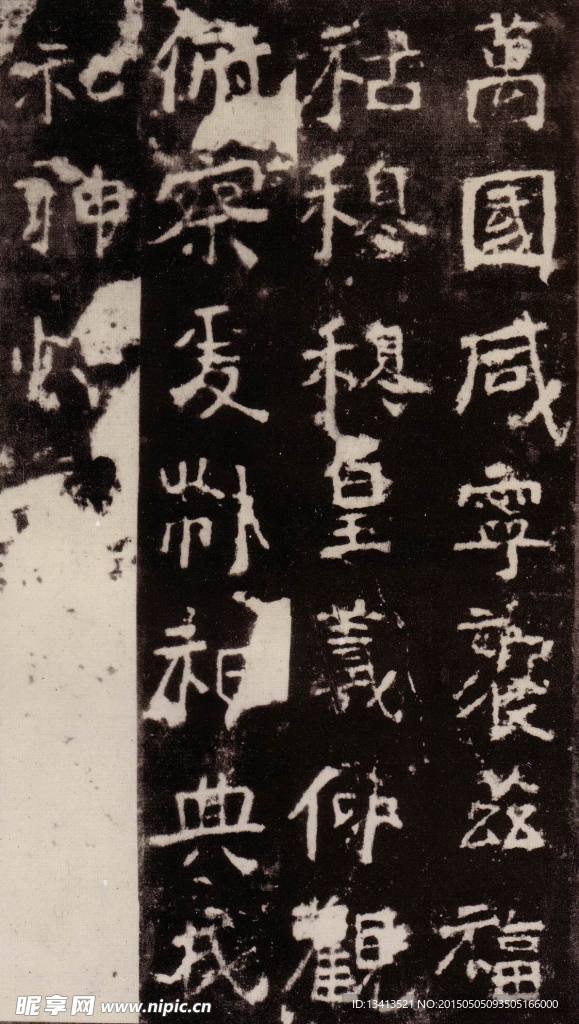 萬國咸寧褱茲福
祜穆穆皇羲仰觀
俯察爰制典
神
昵享网 www.nipic.cn
ID:13413521 NO:20150505093505166000